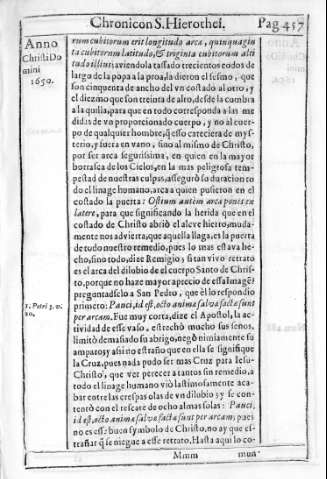 Chronicon S. Hierothei. Pag 457
Anno
Christi Do
mini
1650.
rum cubitorum erit longitudo arcæ, quinquaginta
ta cubitorum latitudo, & triginta cubitorum alti
tudo illius; aviendola tassado trecientos codos de
largo de la popa a la proa, la dieron el sesmo, que
son cinquenta de ancho del vn costado al otro, y
el diezmo que son treinta de alto, desde la cumbra
a la quilia, para que en todo corresponda a las me
didas de vn proporcionado cuerpo, y no al cuer
po de qualquier hombre, q̃ esso careciera de mys-
terio, y fuera en vano, sino al mismo de Christo,
por ser arca segurissima, en quien en la mayor
borrasca de los Cielos, en la mas peligrosa tem-
pestad de nuestras culpas, assegurò su duracion to
do el linage humano, arca a quien pusieron en el
costado la puerta: Ostium autem arca ponis ex
latere, para que significando la herida que en el
costado de Christo abriò el aleve hierro, muda-
mente nos advierta, que aquella llaga, es la puerta
de tudo nuestro remedio, pues lo mas estava he-
cho, sino todo, dize Remigio, si tan vivo retrato
es el arca del dilubio de el cuerpo Santo de Chris-
to, porque no haze mayor aprecio de essa Imagẽ?
preguntadselo a San Pedro, que èl lo respondio
1. Petri 3. n.
20.
primero: Panci, id est, octo anima salva facta sunt
per arcam. Fue muy corta, dize el Apostol, la ac-
tividad de esse vaso, estrechò mucho sus senos,
limitò demasiado su abrigo, negò nimiamente su
amparo, y assi no estraño que en ella se signifique
la Cruz, pues nada pudo ser mas Cruz para Iesu-
Christo, que ver perecer a tantos sin remedio, a
todo el linage humano viò lastimosamente aca-
bar entre las crespas olas de vn dilubio, y se con-
tentò con el rescate de ocho almas solas: Panci,
id est, octo anima salva facta sunt per arcam; pues
no es esse buen symbolo de Christo, no ay que es-
trañar q̃ se niegue a esse retrato. Hasta aqui lo co-
Mmm mun